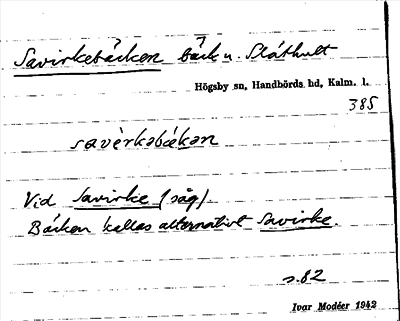 Savirkebäcken bäck u. Slåthult
Högsby sn, Handbörds hd, Kalm. l.
385
savèrkəbäkən
Vid Savirke (såg).
Bäcken kallas alternativt Savirke.
s. 82
Ivar Modéer 1942